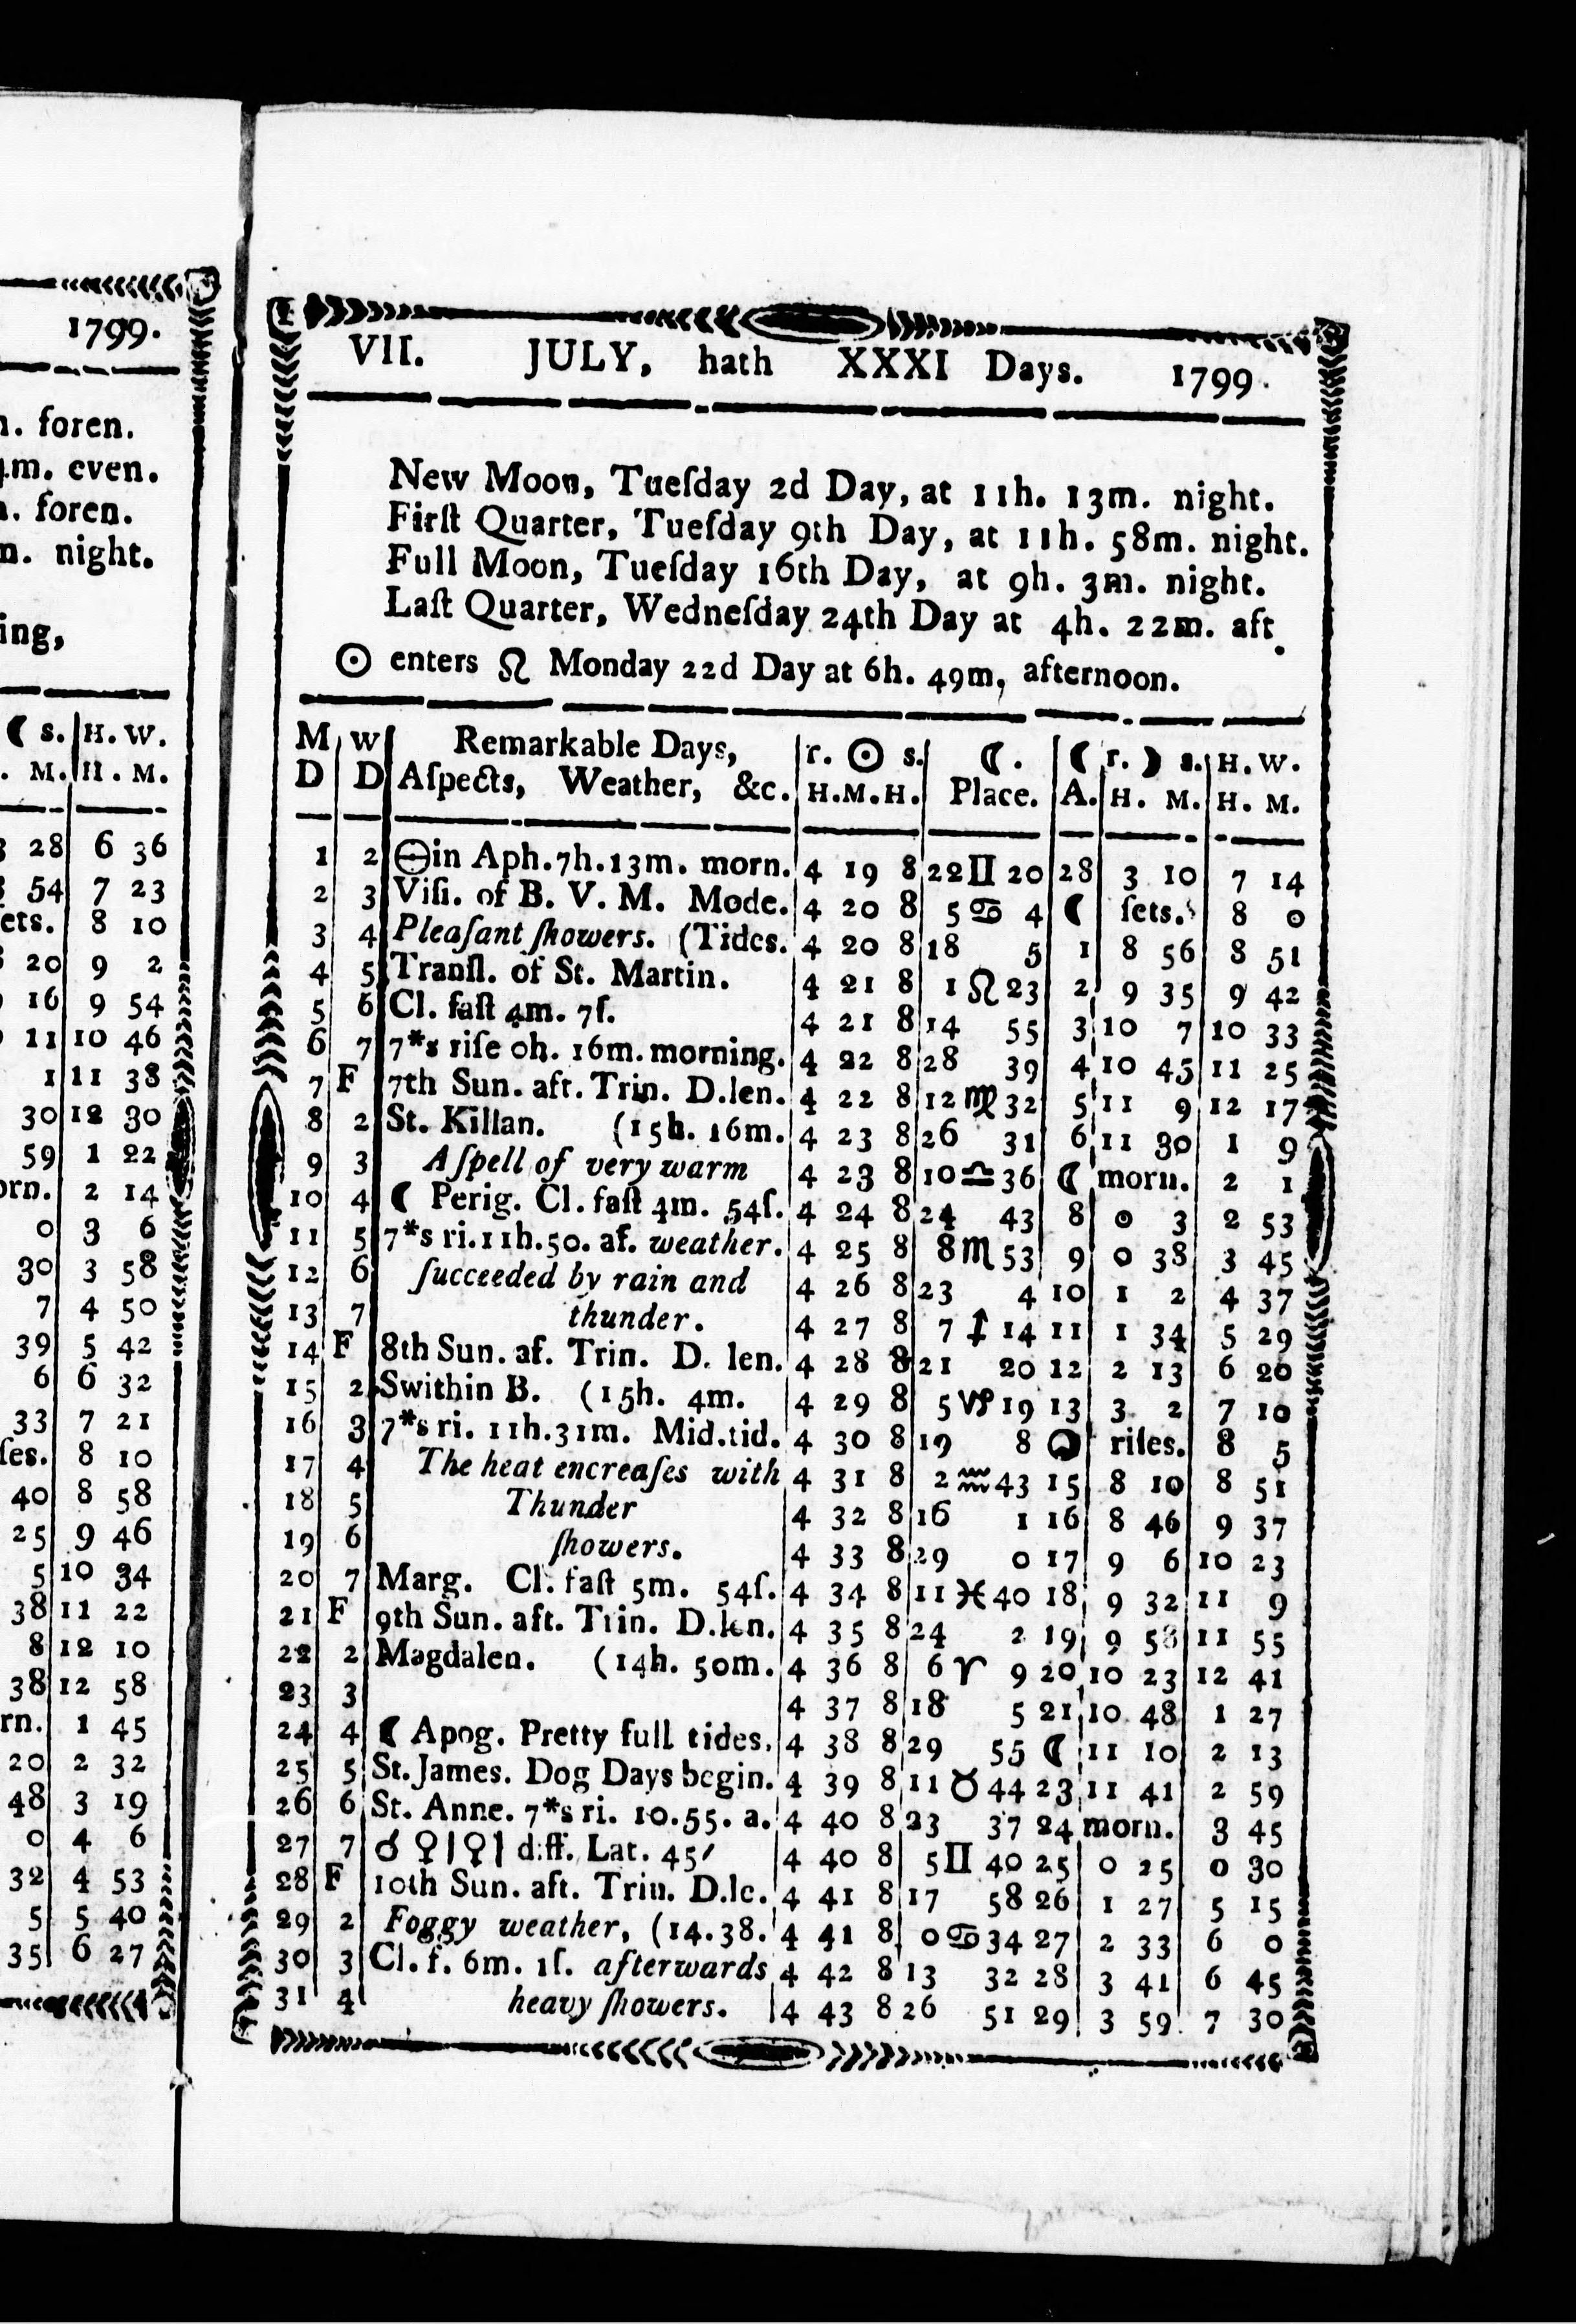 1799.
n. foren.
4m. even.
n. foren.
m. night.
ing,
☾ s. H. W.
. M. H. M.
28 6 36
54 7 23
ets. 8 10
20 9 2
16 9 54
11 10 46
1 11 38
30 12 30
59 1 22
orn. 2 14
0 3 6
30 3 58
7 4 50
39 5 42
6 6 32
33 7 21
ſes. 8 10
40 8 58
25 9 46
5 10 34
38 11 22
8 12 10
38 12 58
rn. 1 45
20 2 32
48 3 19
0 4 6
32 4 53
5 5 40
35 6 27
VII. JULY, hath XXXI Days. 1799.
New Moon, Tueſday 2d Day, at 11h. 13m. night.
Firſt Quarter, Tueſday 9th Day, at 11h. 58m. night.
Full Moon, Tueſday 16th Day, at 9h. 3m. night.
Laſt Quarter, Wedneſday 24th Day at 4h. 22m. aft.
☉ enters ♌ Monday 22d Day at 6h. 49m, afternoon.
M W Remarkable Days, r. ☉ s. ☾. ☾ r. ☽ s. H. W.
D D Aſpects, Weather, &c. H.M.H. Place. A. H. M. H. M.
1 2 ⊖in Aph.7h.13m. morn. 4 19 8 22♊20 28 3 10 7 14
2 3 Viſi. of B. V. M. Mode. 4 20 8 5♋4 ☾ ſets. 8 0
3 4 Pleaſant ſhowers. (Tides. 4 20 8 18 5 1 8 56 8 51
4 5 Tranſl. of St. Martin. 4 21 8 1♌23 2 9 35 9 42
5 6 Cl. faſt 4m. 7ſ. 4 21 8 14 55 3 10 7 10 33
6 7 7*s riſe 0h. 16m. morning. 4 22 8 28 39 4 10 45 11 25
7 F 7th Sun. aft. Trin. D.len. 4 22 8 12♍32 5 11 9 12 17
8 2 St. Killan. (15h. 16m. 4 23 8 26 31 6 11 30 1 9
9 3 A ſpell of very warm 4 23 8 10♎36 ☾ morn. 2 1
10 4 ☾ Perig. Cl. faſt 4m. 54ſ. 4 24 8 24 43 8 0 3 2 53
11 5 7*s ri.11h.50. af. weather. 4 25 8 8♏53 9 0 38 3 45
12 6 ſucceeded by rain and 4 26 8 23 4 10 1 2 4 37
13 7 thunder. 4 27 8 7♐14 11 1 34 5 29
14 F 8th Sun. af. Trin. D. len. 4 28 8 21 20 12 2 13 6 20
15 2 Swithin B. (15h. 4m. 4 29 8 5♑19 13 3 2 7 10
16 3 7*s ri. 11h.31m. Mid.tid. 4 30 8 19 8 riſes. 8 5
17 4 The heat encreaſes with 4 31 8 2♒43 15 8 10 8 51
18 5 Thunder 4 32 8 16 1 16 8 46 9 37
19 6 ſhowers. 4 33 8 29 0 17 9 6 10 23
20 7 Marg. Cl. faſt 5m. 54ſ. 4 34 8 11♓40 18 9 32 11 9
21 F 9th Sun. aft. Trin. D.len. 4 35 8 24 2 19 9 58 11 55
22 2 Magdalen. (14h. 50m. 4 36 8 6♈9 20 10 23 12 41
23 3 4 37 8 18 5 21 10 48 1 27
24 4 ☾ Apog. Pretty full tides. 4 38 8 29 55 ☾ 11 10 2 13
25 5 St. James. Dog Days begin. 4 39 8 11♉44 23 11 41 2 59
26 6 St. Anne. 7*s ri. 10.55. a. 4 40 8 23 37 24 morn. 3 45
27 7 ☌ ♀|♀| diff. Lat. 45′ 4 40 8 5♊40 25 0 25 0 30
28 F 10th Sun. aft. Trin. D.le. 4 41 8 17 58 26 1 27 5 15
29 2 Foggy weather, (14.38. 4 41 8 0♋34 27 2 33 6 0
30 3 Cl. f. 6m. 1ſ. afterwards 4 42 8 13 32 28 3 41 6 45
31 4 heavy ſhowers. 4 43 8 26 51 29 3 59 7 30